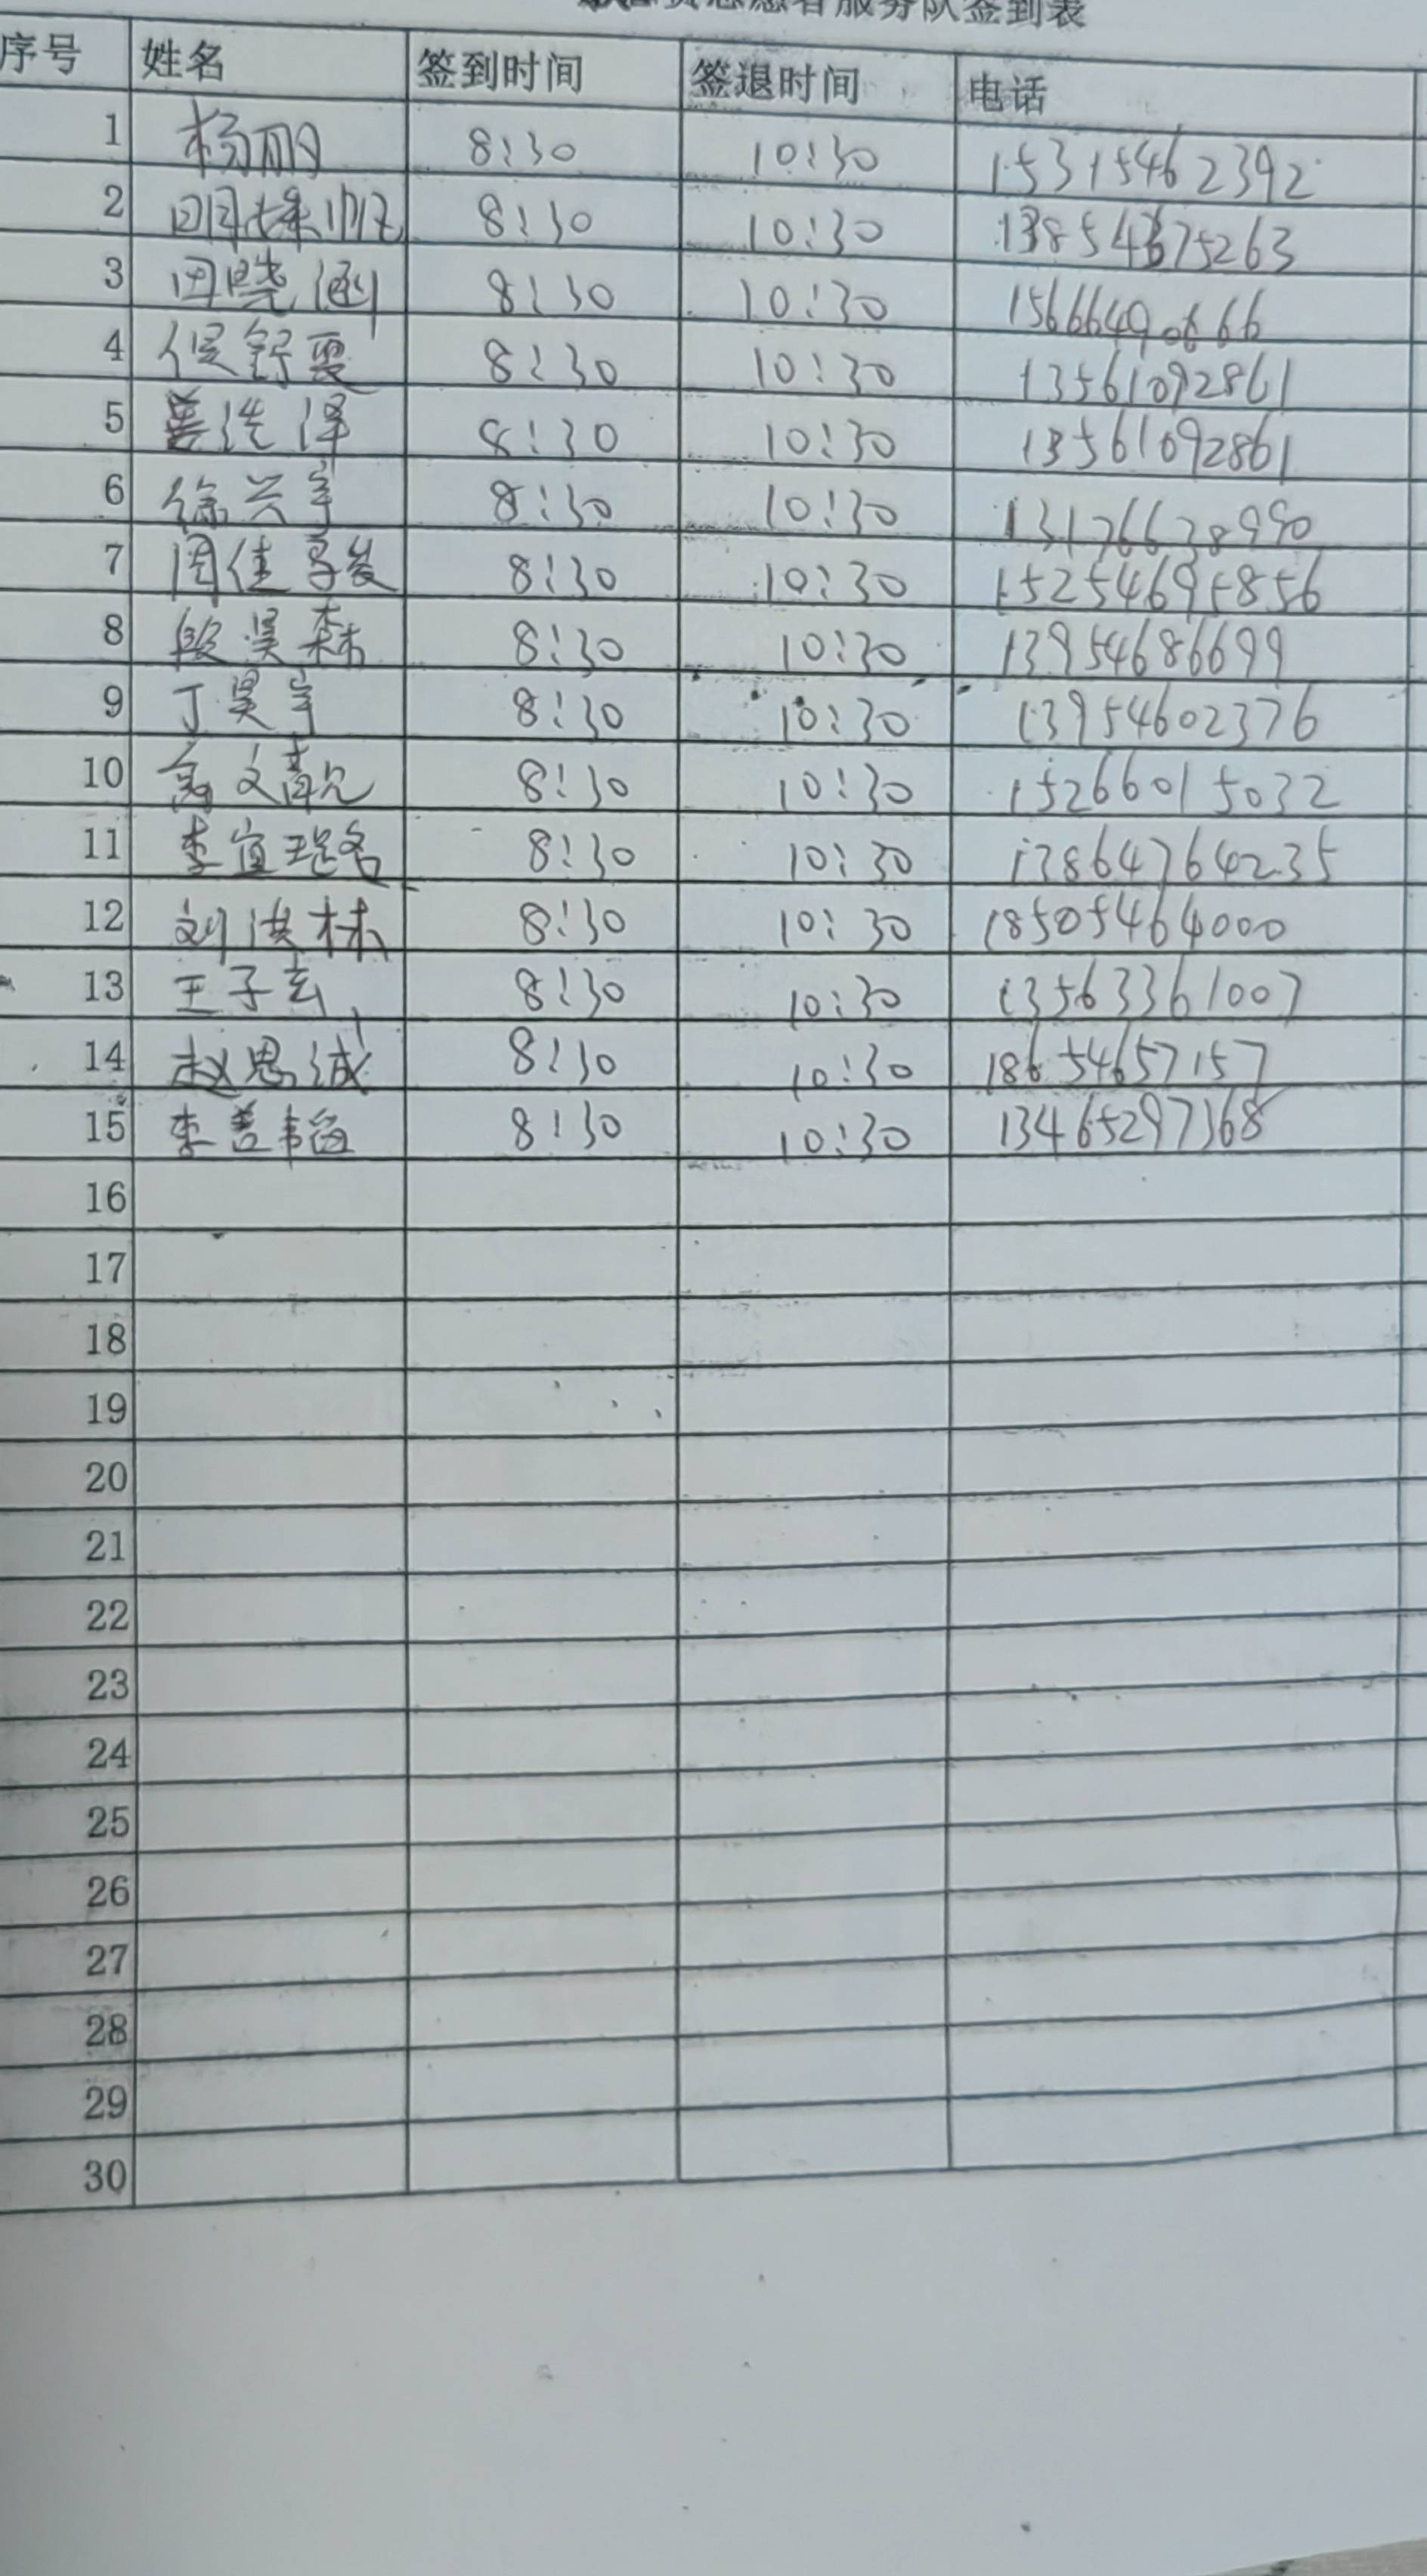 志愿者服务队签到表
序号 姓名 签到时间 签退时间 电话
1 杨丽 8:30 10:30 15315462392
2 8:30 10:30 13854675263
3 田晓涵 8:30 10:30 15666490666
4 侯舒雯 8:30 10:30 13561092861
5 泽 8:30 10:30 13561092861
6 徐兴宇 8:30 10:30 13176638990
7 周佳 8:30 10:30 15254695856
8 段昊森 8:30 10:30 13954686699
9 丁昊宇 8:30 10:30 13954602376
10 文靓 8:30 10:30 15266015032
11 李宜 8:30 10:30 13864764235
12 刘洪林 8:30 10:30 18505464000
13 王子玄 8:30 10:30 13563361007
14 赵思诚 8:30 10:30 18654657157
15 李善韬 8:30 10:30 13465297368
16
17
18
19
20
21
22
23
24
25
26
27
28
29
30